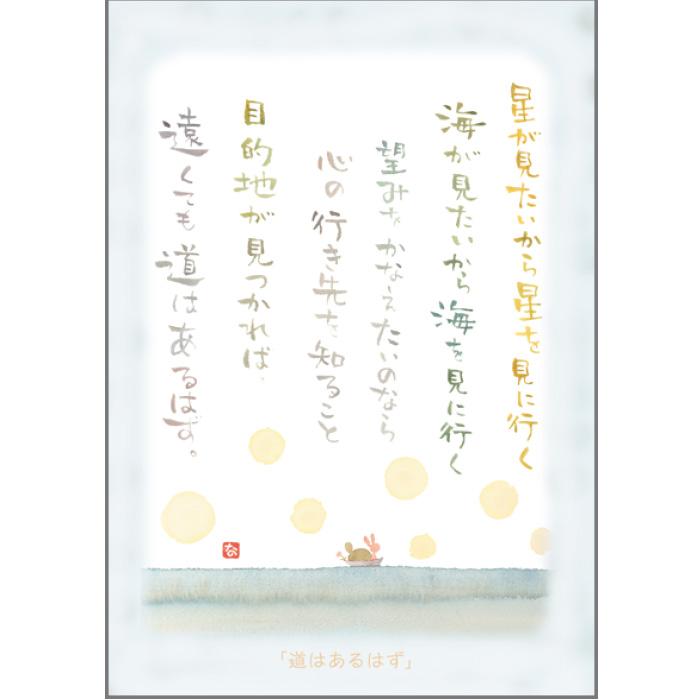 星が見たいから星を見に行く
海が見たいから海を見に行く
望みをかなえたいのなら
心の行き先を知ること
目的地が見つかれば、
遠くても道はあるはず。
な
「道はあるはず」